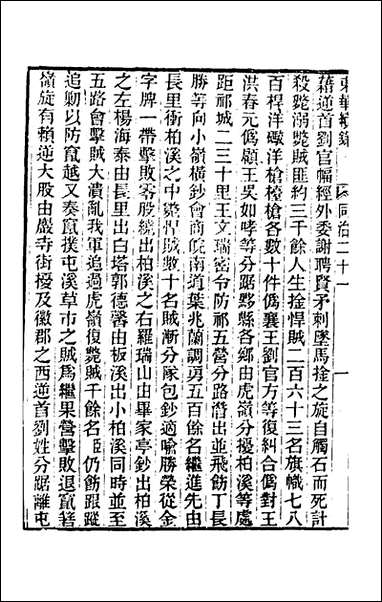 東華續錄 同治二十一
藉逆首劉官幅經外委謝聘賢矛刺墜馬捡之旋自觸石而死計
殺斃溺斃賊匪約三千餘人生捡悍賊二百六十三名旗幟七八
百桿洋礮洋槍擡槍各數十件僞襄王劉官方等復糾合僞對王
洪春元僞顧王吳如孝等分踞黟縣各鄉由虎嶺分擾柏溪等處
距祁城二三十里王文瑞密令防祁五營分路潛出並飛飭丁長
勝等向小嶺橫鈔會商皖南道葉兆蘭調勇五百餘名繼進先由
長里衝柏溪之中斃悍賊數十名賊漸分隊包鈔適喻勝榮從金
字牌一帶擊敗零股繞出柏溪之右羅瑞山由畢家亭鈔出柏溪
之左楊海泰由長里出白塔郭德馨由板溪出小柏溪同時並至
五路會擊賊大潰亂我軍追過虎嶺復斃賊千餘名臣仍飭跟蹤
追勦以防竄越又奏竄撲屯溪草市之賊爲繼果營擊敗退竄箬
嶺旋有賴逆大股由嚴寺街援及徽郡之西逆首劉姓分踞離屯